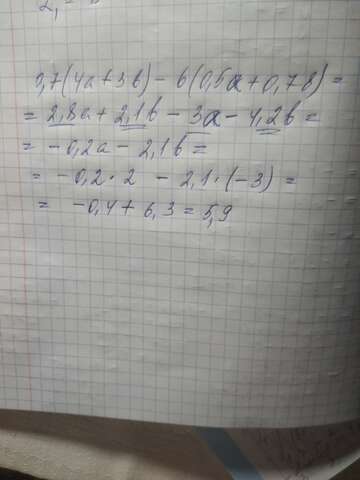 0,7(4a+3b) - 6(0,5a+0,7b) =
= 2,8a + 2,1b - 3a - 4,2b =
= -0,2a - 2,1b =
= -0,2 · 2 - 2,1 · (-3) =
= -0,4 + 6,3 = 5,9